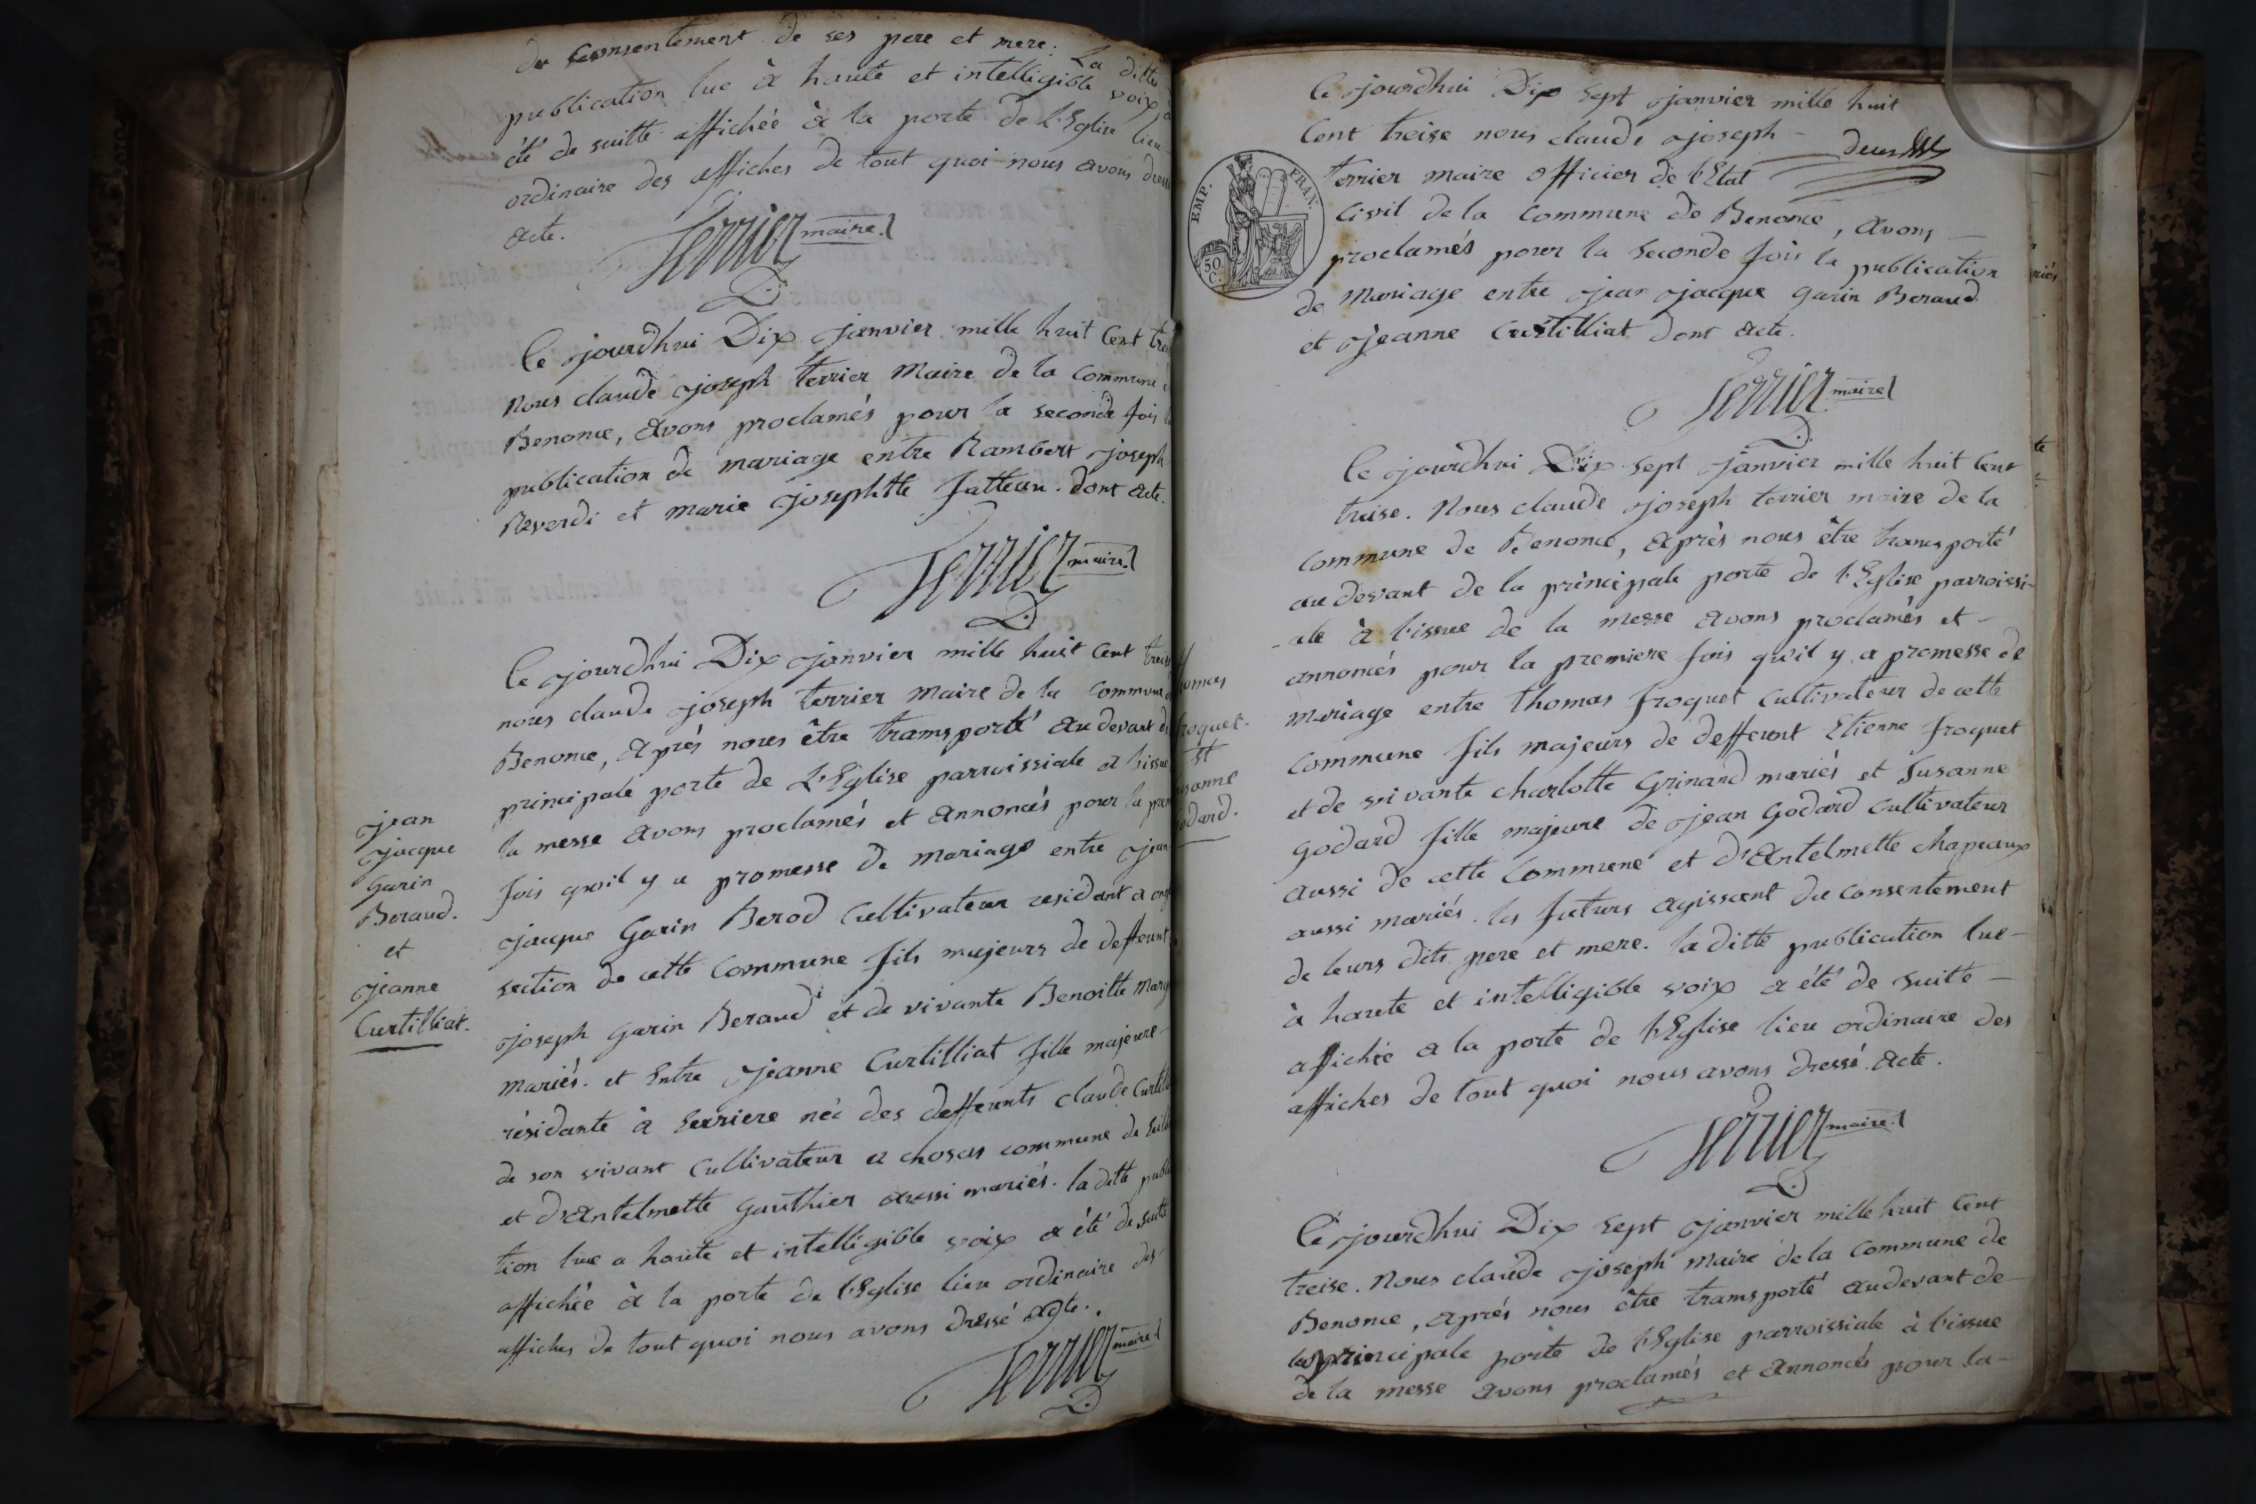 du consentement de ses pere et mere. La ditte
publication lue à haute et intelligible voix a
été de suitte affichée à la porte de l'Eglise lieu
ordinaire des affiches de tout quoi nous avons dressé
acte.
Terrier maire
Ce jourdhui Dix janvier mille huit Cent treise
nous claude joseph terrier Maire de la Commune de
Benonce, avons proclamés pour la seconde fois la
publication de mariage entre Rambert joseph
Reverdi et marie josephtte fatteau. dont acte.
Terrier maire
Ce jourdhui Dix janvier mille huit Cent treise
nous claude joseph terrier maire de la Commune de
Benonce, après nous être transporté au devant de
principale porte de L'Eglise parroissiale a l'issue
la messe avons proclamés et annoncés pour la
fois qu'il y a promesse de mariage entre jean
jacque Garin Berod Cultivateur residant a
section de cette Commune fils majeurs de deffeunt
joseph Garin Beraud et de vivante Benoitte
mariés. et Entre jeanne Curtilliat fille majeure
résidante à serriere née des deffeunts claude
de son vivant Cultivateur a chosas commune de
et d'Antelmette Gauthier aussi mariés. la ditte
tion lue a haute et intelligible voix a été de suitte
affichée à la porte de l'Eglise lieu ordinaire des
affiches de tout quoi nous avons dressé acte.
Terrier maire
jean
jacque
Garin
Beraud.
et
jeanne
Curtilliat.
Ce jourdhui Dix sept janvier mille huit
Cent treise nous claude joseph
terrier maire officier de l'Etat
Civil de la Commune de Benonce, avons
proclamés pour la seconde fois la publication
de Mariage entre jean jacque garin Beraud
et jeanne Curtilliat dont acte.
EMP. FRAN.
50
C.
Terrier maire
Ce jourdhui Dix sept janvier mille huit Cent
treise. Nous claude joseph terrier maire de la
commune de Benonce, après nous être transporté
au devant de la principale porte de l'Eglise parroissi-
-ale à l'issue de la messe avons proclamés et
annoncés pour la premiere fois qu'il y a promesse de
mariage entre thomas froquet Cultivateur de cette
commune fils majeurs de deffeunt Etienne froquet
et de vivante charlotte Grinand mariés et Susanne
Godard fille majeure de jean Godard Cultivateur
aussi de cette Commune et d'Antelmette chapeaux
aussi mariés. les futurs agissant du consentement
de leurs dits pere et mere. la ditte publication lue
à haute et intelligible voix a été de suite
affichée a la porte de l'Eglise lieu ordinaire des
affiches de tout quoi nous avons dressé acte.
Terrier maire
Ce jourdhui Dix sept janvier mille huit Cent
treise. Nous claude joseph maire de la Commune de
Benonce, après nous être transporté au devant de
la principale porte de l'Eglise parroissiale à l'issue
de la messe avons proclamés et annoncés pour la